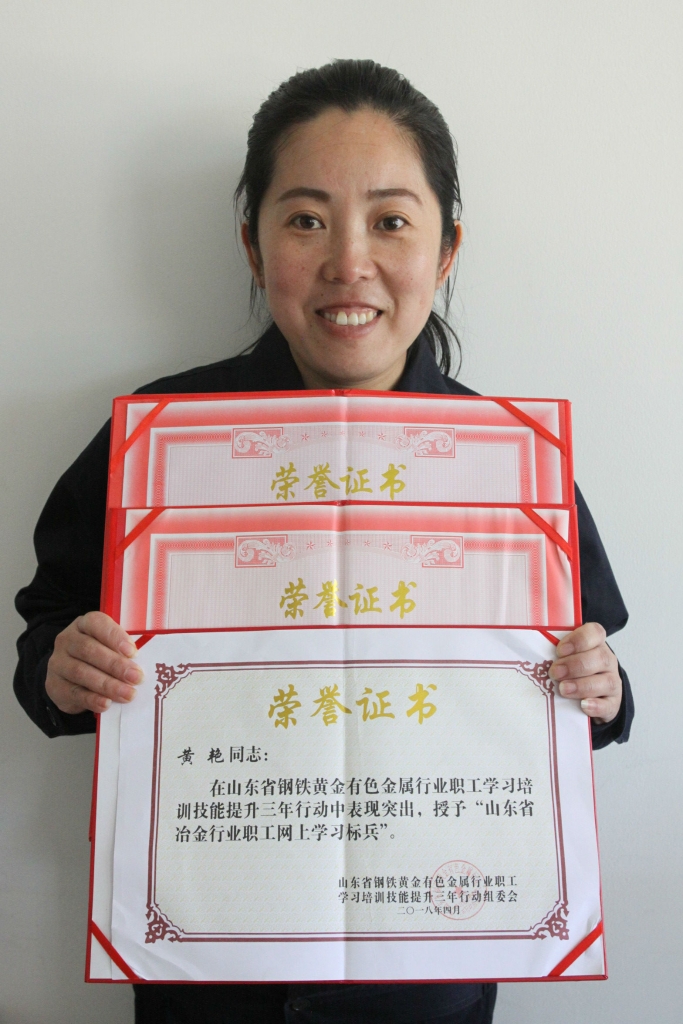 荣誉证书
荣誉证书
荣誉证书
黄 艳同志：
在山东省钢铁黄金有色金属行业职工学习培
训技能提升三年行动中表现突出，授予“山东省
冶金行业职工网上学习标兵”。
山东省钢铁黄金有色金属行业职工
学习培训技能提升三年行动组委会
二〇一八年四月